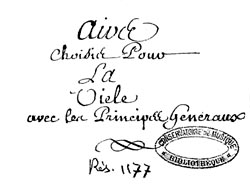 Airs
Choisis Pour
La
Viele
avec les Principes Generaux
CONSERVATOIRE DE MUSIQUE
BIBLIOTHÈQUE
Rés. 1177